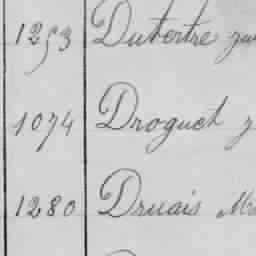 1253 Dutertre
1074 Droguet
1280 Druais